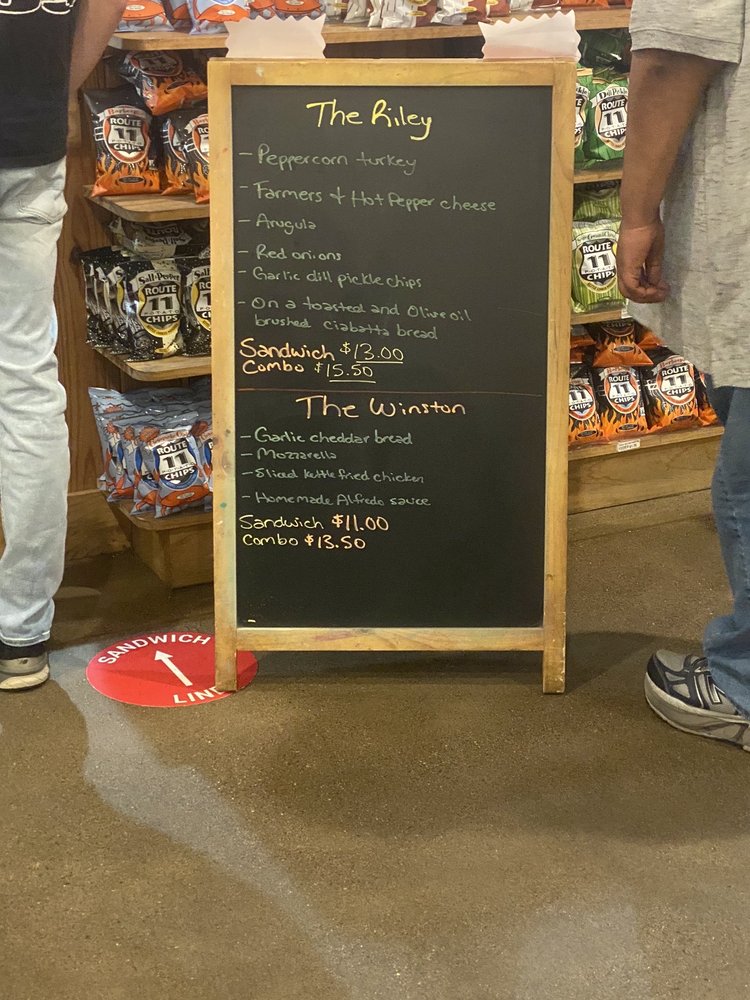 The Riley
- Peppercorn turkey
- Farmers & Hot Pepper cheese
- Arugula
- Red onions
- Garlic dill pickle chips
- On a toasted and Olive oil
brushed ciabatta bread
Sandwich $13.00
Combo $15.50
The Winston
- Garlic cheddar bread
- Mozzarella
- Sliced kettle fried chicken
- Homemade Alfredo sauce
Sandwich $11.00
Combo $13.50
SANDWICH
LINE
ROUTE
11
CHIPS
Salt & Pepper
ROUTE
11
POTATO
CHIPS
ROUTE
11
CHIPS
Dill Pickle
ROUTE
11
CHIPS
ROUTE
11
CHIPS
ROUTE
11
CHIPS
ROUTE
11
CHIPS